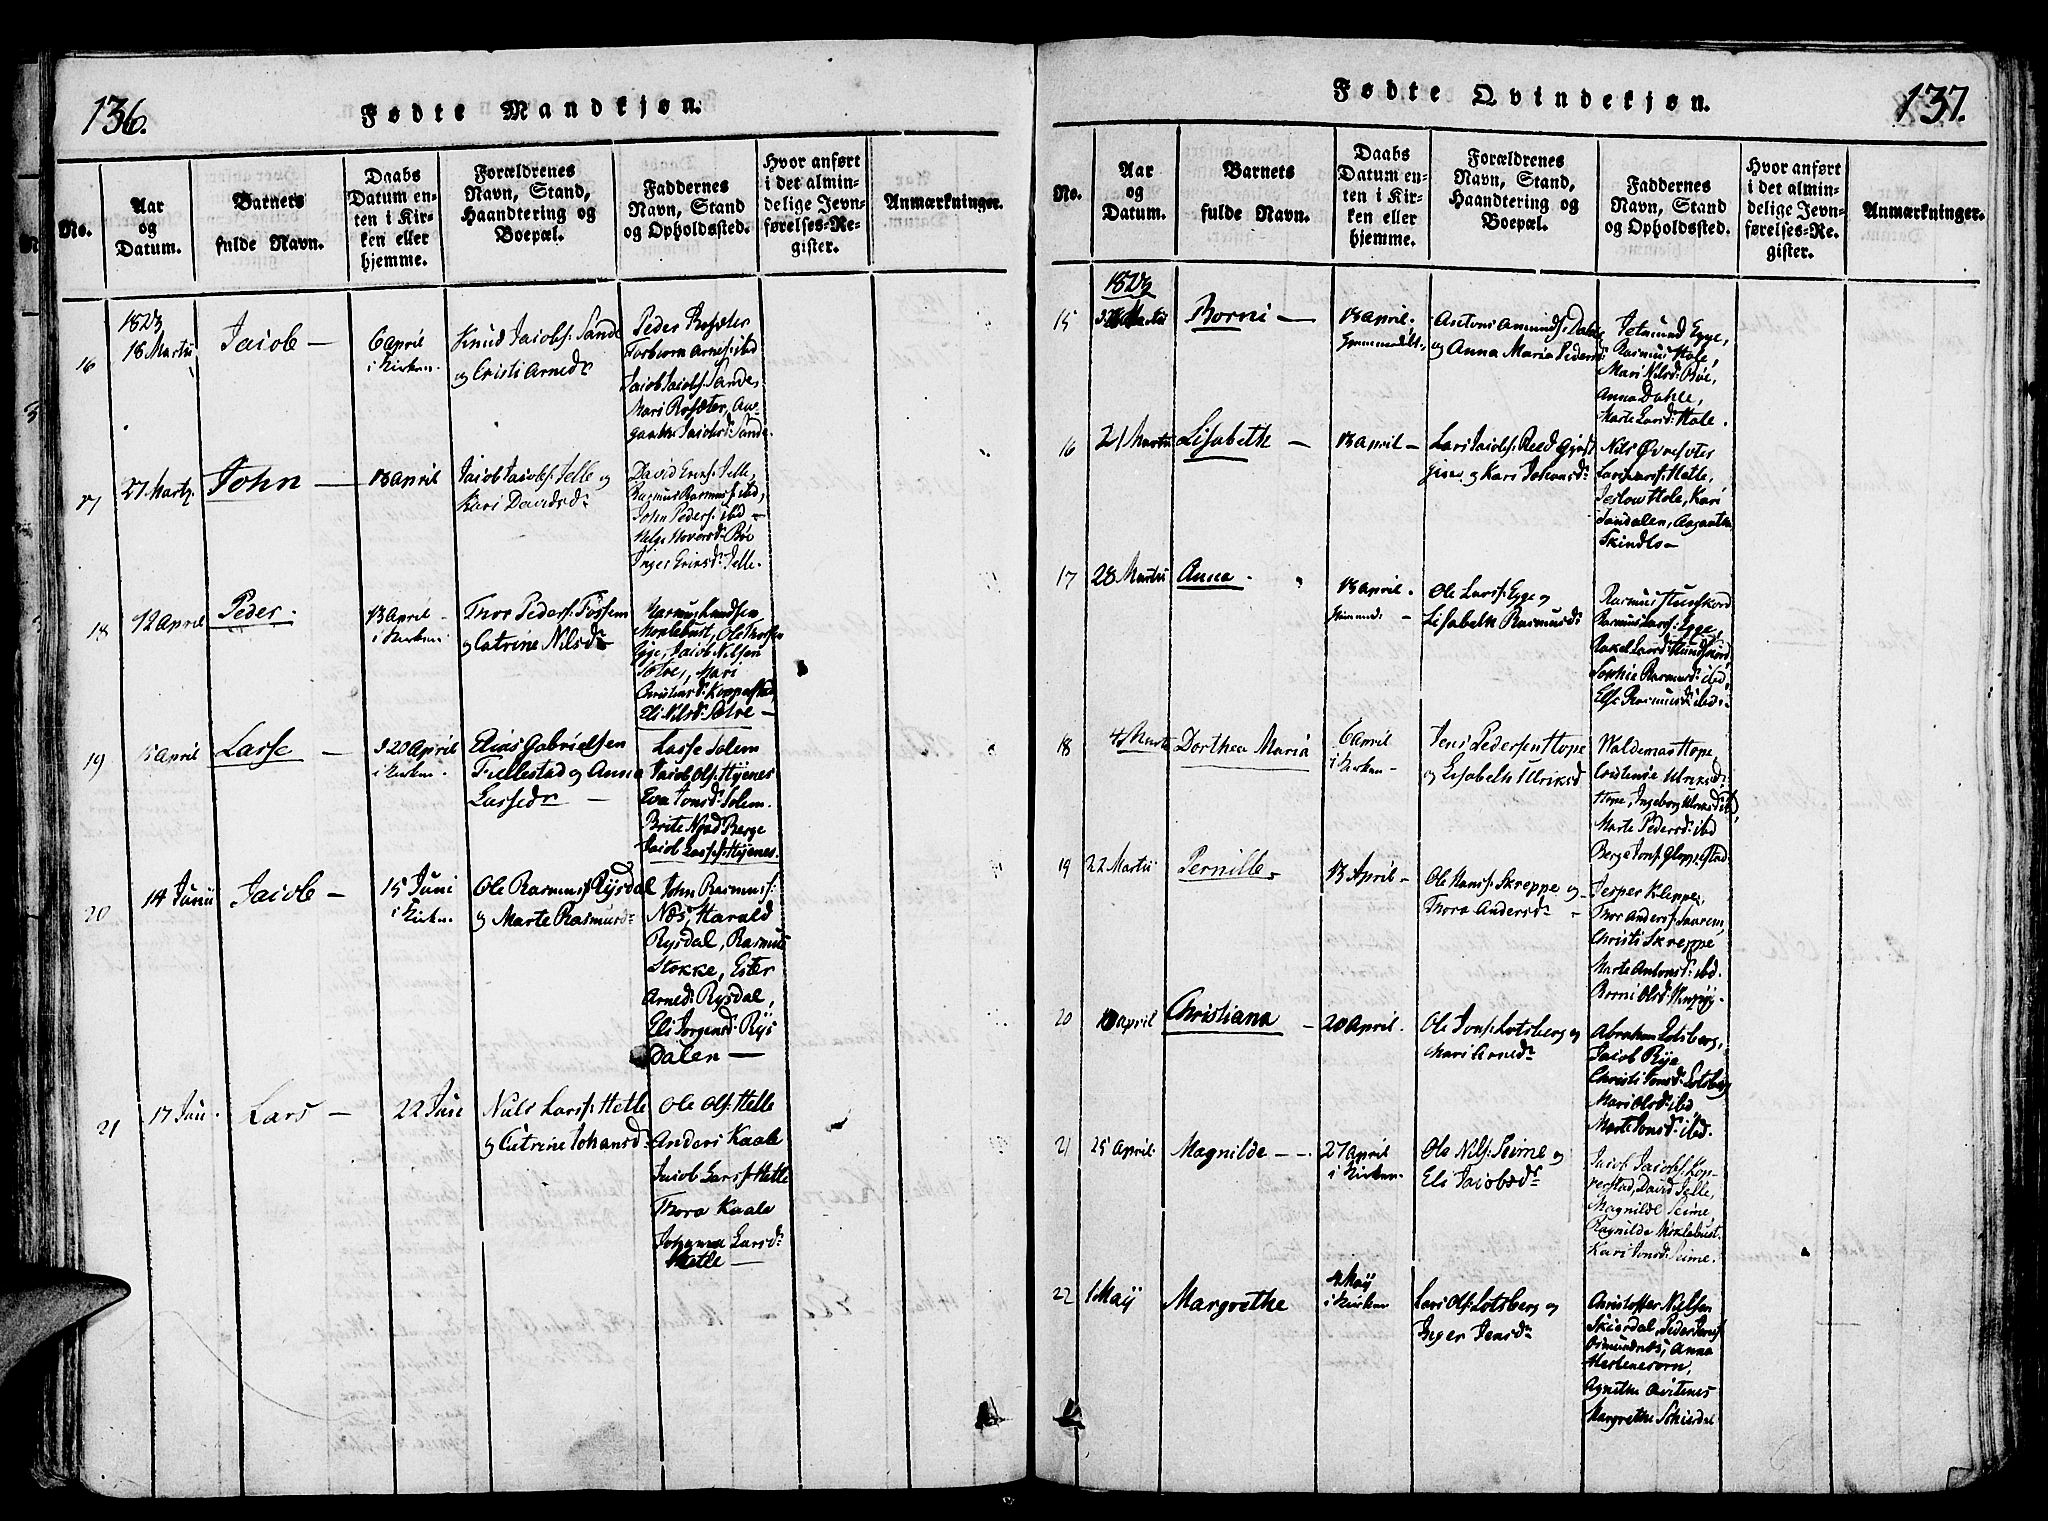 136.
Fødte Mandkjøn.
No.
Aar
og
Datum.
Barnets
fulde Navn.
Daabs
Datum en-
ten i Kir-
ken eller
hjemme.
Forældrenes
Navn, Stand,
Haandtering og
Boepæl.
Faddernes
Navn, Stand
og Opholdssted.
Hvor anført
i det almin-
delige Jevn-
førelses-Re-
gister.
Anmærkninger.
16
1823
18 Martii
Jacob —
6 april
i Kirken.
Knud Jacobs: Sande
og Cristi Arnedr
Peder
Torbiorn Arnes: ibd
Jacob Jacobs: Sande,
Mari
Jacobsd: Sande.
17
27 Martz
John —
13 april
Jacob Jacobs: Jelle og
Kari Davidsdr
David Erics: Jelle,
Rasmus Rasmus: ibd,
John Peders: ibd —
Helge Boe
Inger Ericsd: Jelle.
18
12 april
Peder.
13 april
i Kirken
Thor Peders: Fossem
og Catrine Nilsdr
Rasmus Knudsen
Myklebust, Ole Thorsen
Egge, Jacob Nilsen
Solve, Mari
Eli Nilsd: Solve —
19
april
Lasse —
20 April
i Kirken.
Elias Gabrielsen
Fiellestad og Anna
Lassedr —
Lasse Solem
Jacob Ols: Hyenes
Eva Jonsd: Solem.
Brite Berge
Jacob Lasses: Hyenes.
20
14 Junii
Jacob —
15 Juni
i Kirken
Ole Rasmus: Rysdal
og Marte Rasmusdr
John Rasmus:
Nes, Harald
Rysdal, Rasmus
Stokke, Ester
Arned: Rysdal,
Eli Jorgensd: Rys
dalen —
21
17 Jun.
Lars —
22 Juni
Nils Lars: Hetle
og Catrine Johansd:
Ole Ols: Hetle
Anders Kaale
Jacob Lars: Hetle
Thora Kaale
Johanna Larsd:
Hetle —
137.
Fødte Qvindekjøn.
No.
Aar
og
Datum.
Barnets
fulde Navn.
Daabs
Datum en-
ten i Kir-
ken eller
hjemme.
Forældrenes
Navn, Stand,
Haandtering og
Boepæl.
Faddernes
Navn, Stand
og Opholdssted.
Hvor anført
i det almin-
delige Jevn-
førelses-Re-
gister.
Anmærkninger.
1823
15
Martii
Borni —
13 april.
Antoni Amunds: Dahle
og Anna Maria Pedersd:
Egge,
Rasmus Hole,
Mari Nilsd: Bøe,
Anna Dahle,
Marte Larsd: Hole.
16
21 Martii
Lisabeth —
13 april —
Lars Jacobs: Reed
og Kari Johansdr
Nils
Hetle,
Hole, Kari
Sandalen, Aagaathe
Skindlo —
17
28 Martii
Anna.
13 april.
Ole Lars: Egge og
Lisabeth Rasmusd:
Rasmus
Rasmus Lars: Egge,
Rakel Larsd:
Sophie Rasmusd: ibd,
Else Rasmusd: ibd.
18
Martii
Dorthea Maria
6 april
i Kirken —
Jens Pedersen Hope
og Lisabeth Ulriksd
Waldemar Hope
Cristense Ulriksd:
Hope, Ingeborg Ulriksd: ibd,
Marte Pedersd: ibd
Berge Jons: Gloppestad
19
22 Martii
Pernille —
13 April —
Ole Hans: Skreppe og
Thora Andersdr —
Jesper Kleppe,
Thor Anders:
Christi Skreppe
Marte Antonsd: ibd.
Borni Olsd:
20
april
Christiana —
20 April.
Ole Jons: Lotsberg og
Mari Arnedr
Abraham Lotsberg,
Jacob Rye
Christi Jonsd: Lotsberg
Mari Olsd: ibd
Marte Jonsd: ibd.
21
25 April.
Magnilde —
27 april
i Kirken.
Ole Nils: Seime og
Eli Jacobsdr
Jacob Jacobs:
David Jelle,
Magnilde Seime,
Ragnilde Miklebust.
Kari Jonsd: Seime.
22
1 Maÿ
Margrethe
4 Maÿ
i Kirken
Lars Ols: Lotsberg og
Inger Jensdr
Christoffer Nielsen
Skierdal, Peder Jens:
Osmundnes, Anna
Mestenesorn,
Agnethe
Margrethe Skierdal